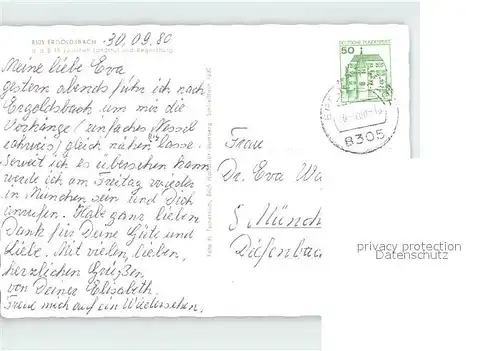 8305 ERGOLDSBACH
30.09.80
a. d. B 15 zwischen Landshut und Regensburg
Meine liebe Eva
gestern abends fuhr ich nach
Ergoldsbach um mir die
Vorhänge (einfaches Nessel
) gleich nähen lasse.
Soweit ich es übersehen kann
werde ich am Freitag wieder
in München sein und Dich
anrufen. Habe ganz lieben
Dank für Deine Güte und
Liebe. Mit vielen, lieben,
herzlichen Grüßen
von Deiner Elisabeth.
Freue mich auf ein Wiedersehen.
DEUTSCHE BUNDESPOST
50
8305
Frau
Dr. Eva Wa
8 Münch
Diefenbac
privacy protection
Datenschutz